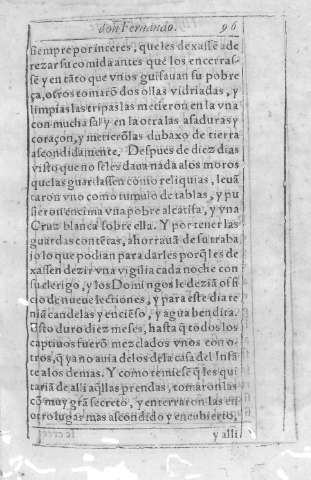 don Fernando. 96
siempre por interes, que les dexassẽ ade
rezar su comida antes que los encerras-
sẽ y en tãto que vnos guisauan su pobre
ça, otros tomarõ dos ollas vidriadas, y
limpias las tripas las metieron en la vna
con mucha sal y en la otra las asaduras y
coraçon, y metierõlas dubaxo de tierra
ascondidamente. Despues de diez dias
visto que no se les daua nada a los moros
que las guardassen como reliquias, leuã
taron vno como tumulo de tablas, y pu
sieron encima vna pobre alcatifa, y vna
Cruz blanca sobre ella. Y por tener las
guardas contẽtas, ahorrauã de su traba
jo lo que podian para darles porq̃ les de
xassen dezir vna vigilia cada noche con
su clerigo, y los Domingos le deziã offi
cio de nueue lectiones, y para este dia te
niã candelas y enciẽso, y agua bendita.
Esto duro diez meses, hasta q̃ todos los
captiuos fuerõ mezclados vnos con o-
tros, q̃ ya no auia de los de la casa del Infã
te a los demas. Y como temiessẽ q̃ les qui
tariã de alli aq̃llas prendas, tomarõ las
cõ muy grã secreto, y enterraron las en
otro lugar mas ascondido y encubierto,
y alli